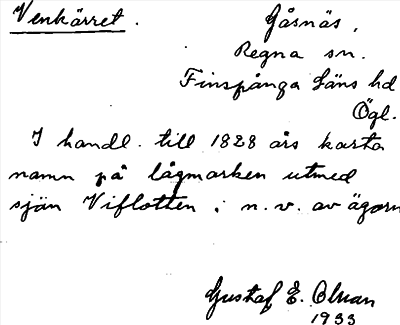 Venkärret.
Gåsnäs,
Regna sn.
Finspånga läns hd
Ögl.
I handl. till 1828 års karta
namn på lågmarken utmed
sjön Viflotten i n.v. av ägorn
Gustaf E.
1933